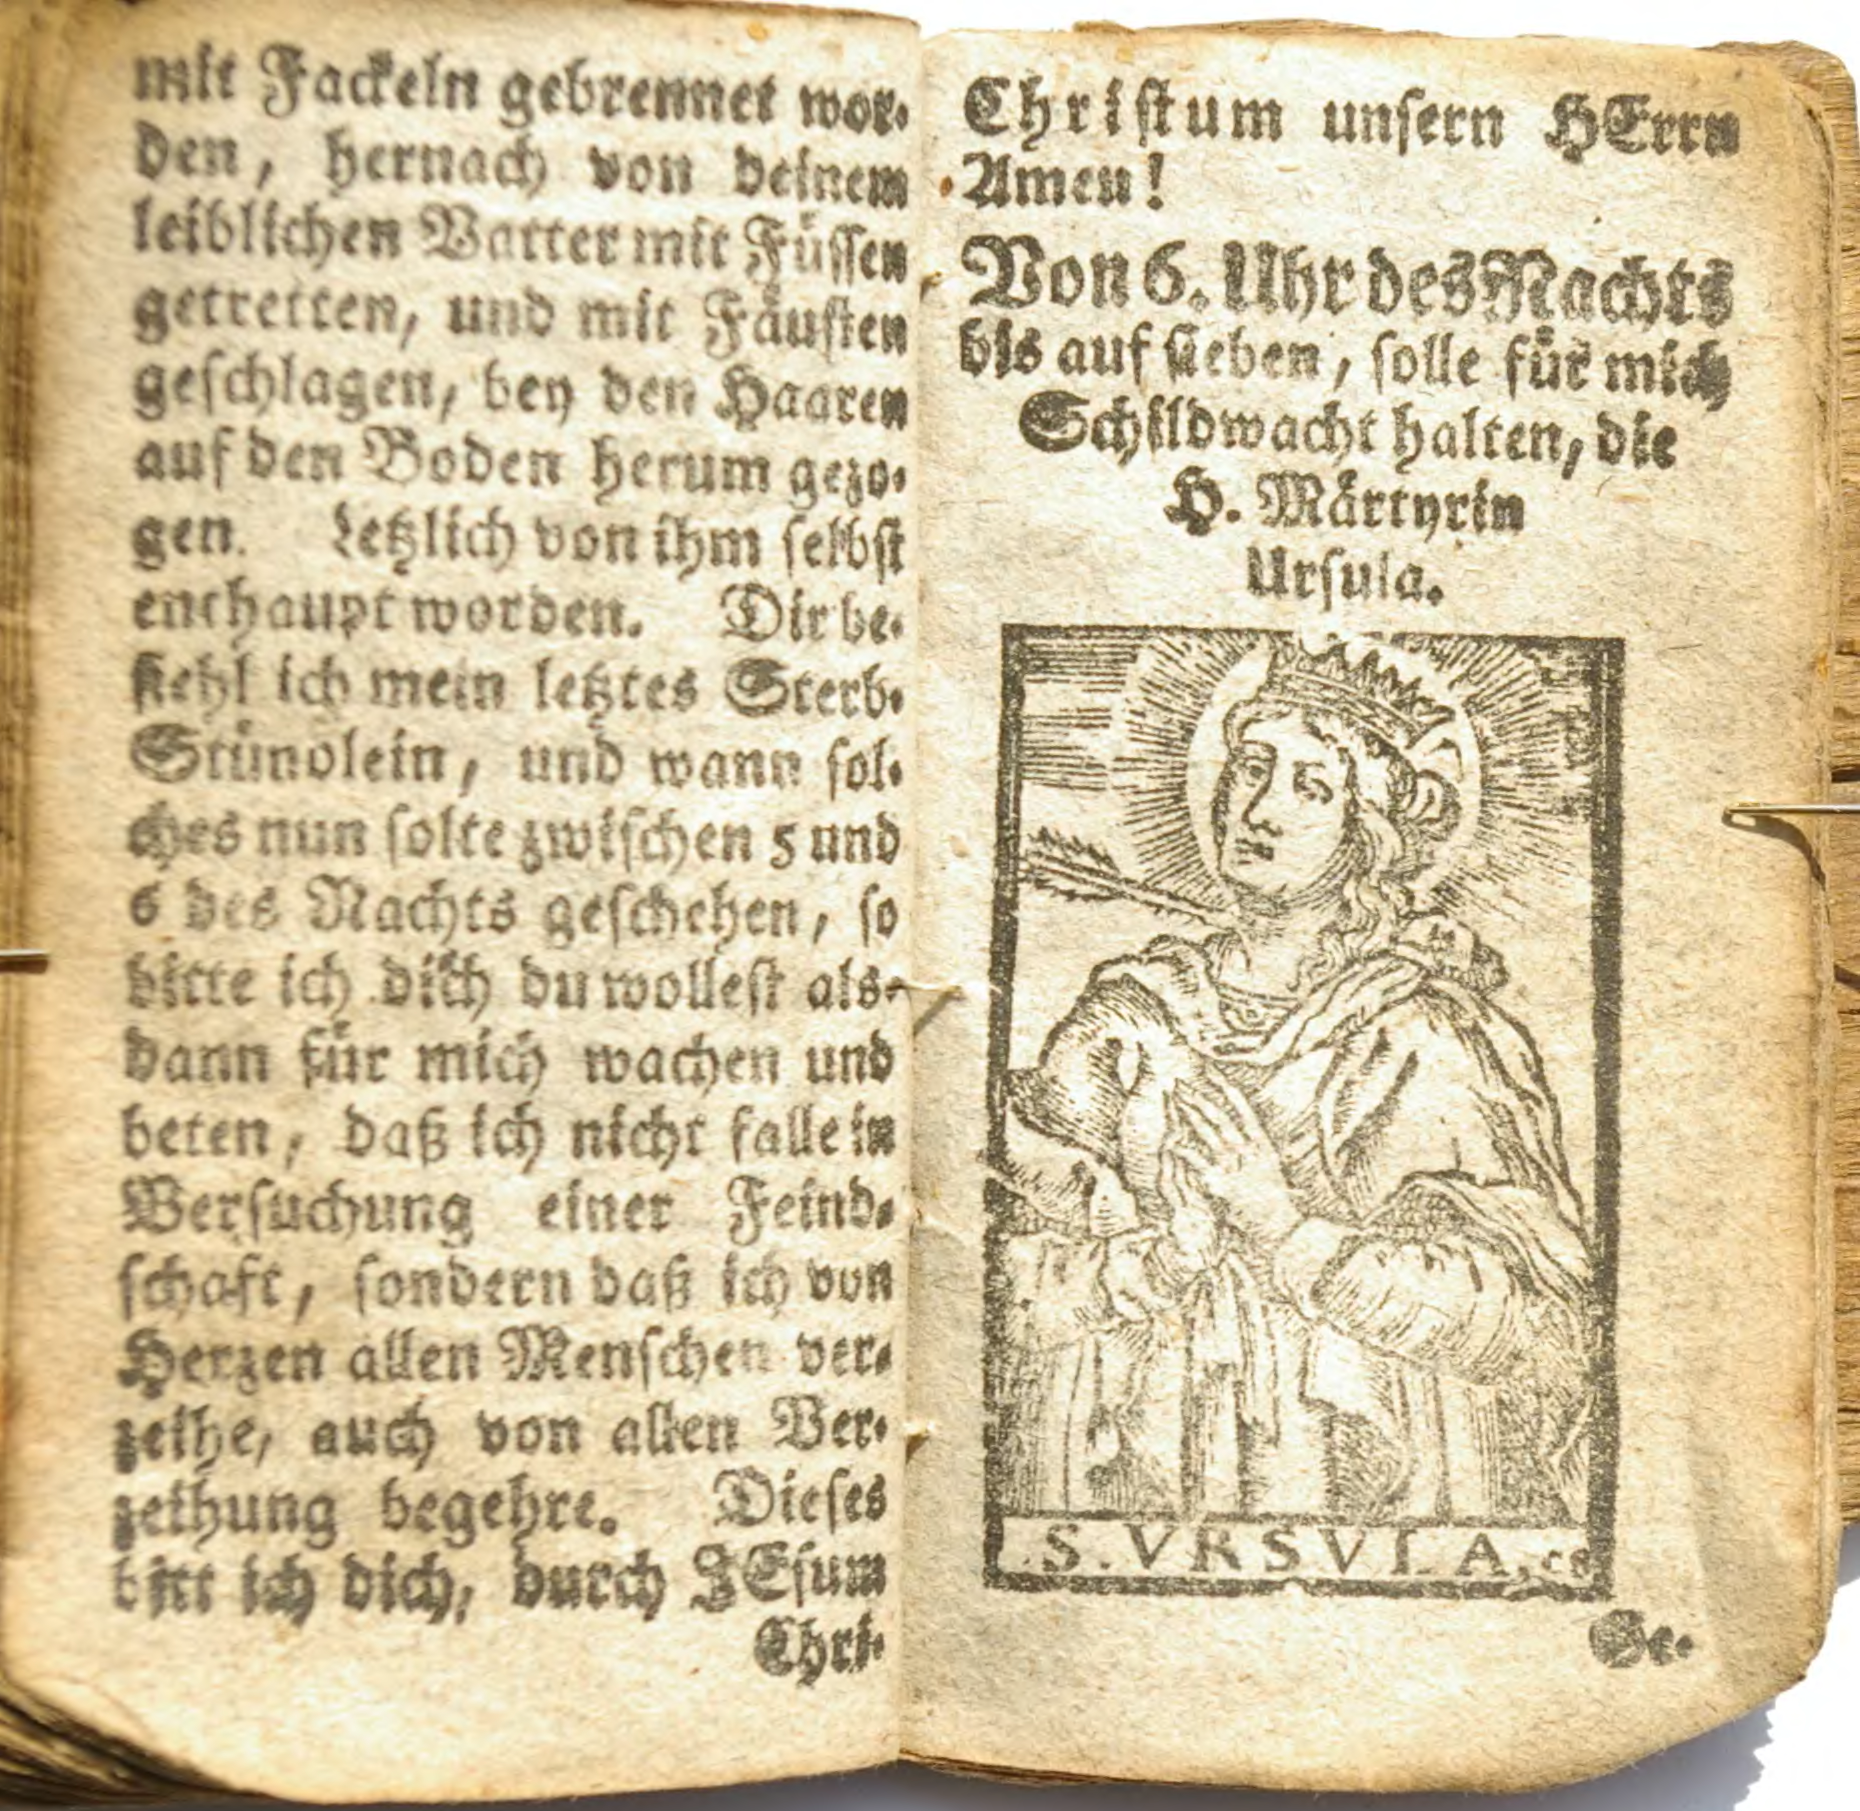 mit Fackeln gebrennet wor-
den, hernach von deinem
leiblichen Vatter mit Füssen
getretten, und mit Fäusten
geschlagen, bey den Haaren
auf den Boden herum gezo-
gen. Letzlich von ihm selbst
enthaupt worden. Dir be-
fiehl ich mein letztes Sterb-
Stündlein, und wann sol-
ches nun solte zwischen 5 und
6 des Nachts geschehen, so
bitte ich dich du wollest als-
dann für mich wachen und
beten, daß ich nicht falle in
Versuchung einer Feind-
schaft, sondern daß ich von
Herzen allen Menschen ver-
zeihe, auch von allen Ver-
zeihung begehre. Dieses
bitt ich dich, durch JEsum
Chri-
Christum unsern HErrn
Amen!
Von 6. Uhr des Nachts
bis auf sieben, solle für mich
Schildwacht halten, die
H. Märtyrin
Ursula.
S. VRSVLA
Ge-